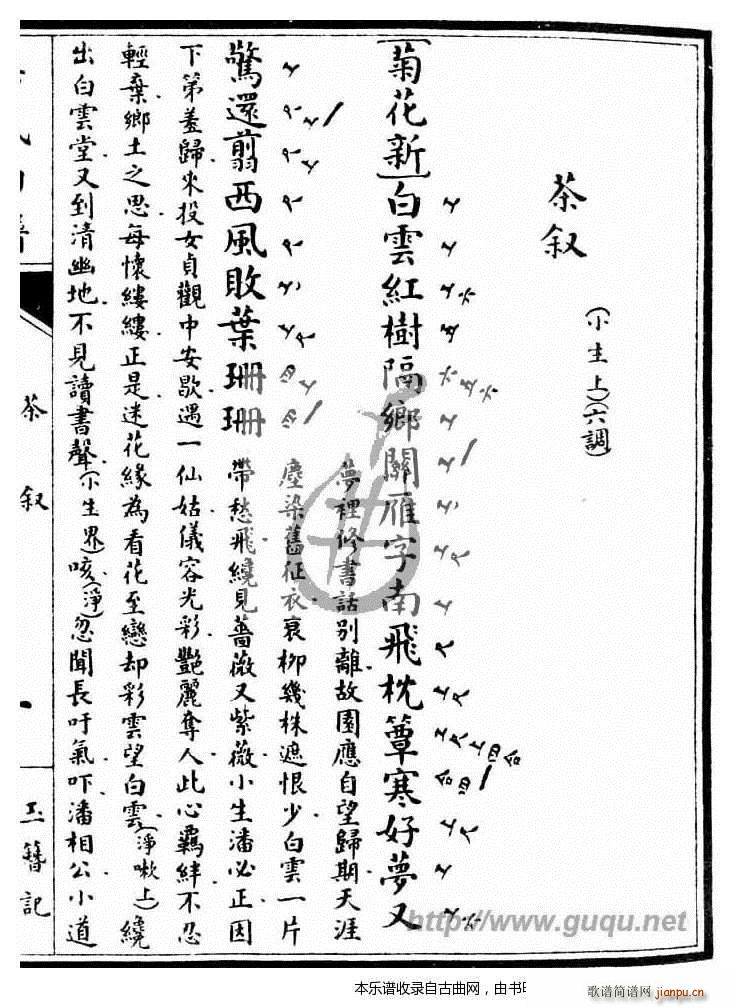 茶叙
(小生上)(六調)
[菊花新]白雲紅樹隔鄉關雁字南飛枕簟寒好夢又
驚還翦西風敗葉珊珊
夢裡修書話別離故園應自望歸期天涯
塵染舊征衣衰柳幾株遮恨少白雲一片
帶愁飛繞見薔薇又紫薇小生潘必正因
下第羞歸來投女貞觀中安歇遇一仙姑儀容光彩艷麗奪人此心羈絆不忍
輕棄鄉土之思每懷縷縷正是迷花緣為看花至戀却彩雲望白雲(淨嗽上)纔
出白雲堂又到清幽地不見讀書聲(小生界)咳(淨)忽聞長吁氣吓潘相公小道
茶叙
一
玉簪記
http://www.guqu.net
本乐谱收录自古曲网，由书
歌谱简谱网
jianpu.cn